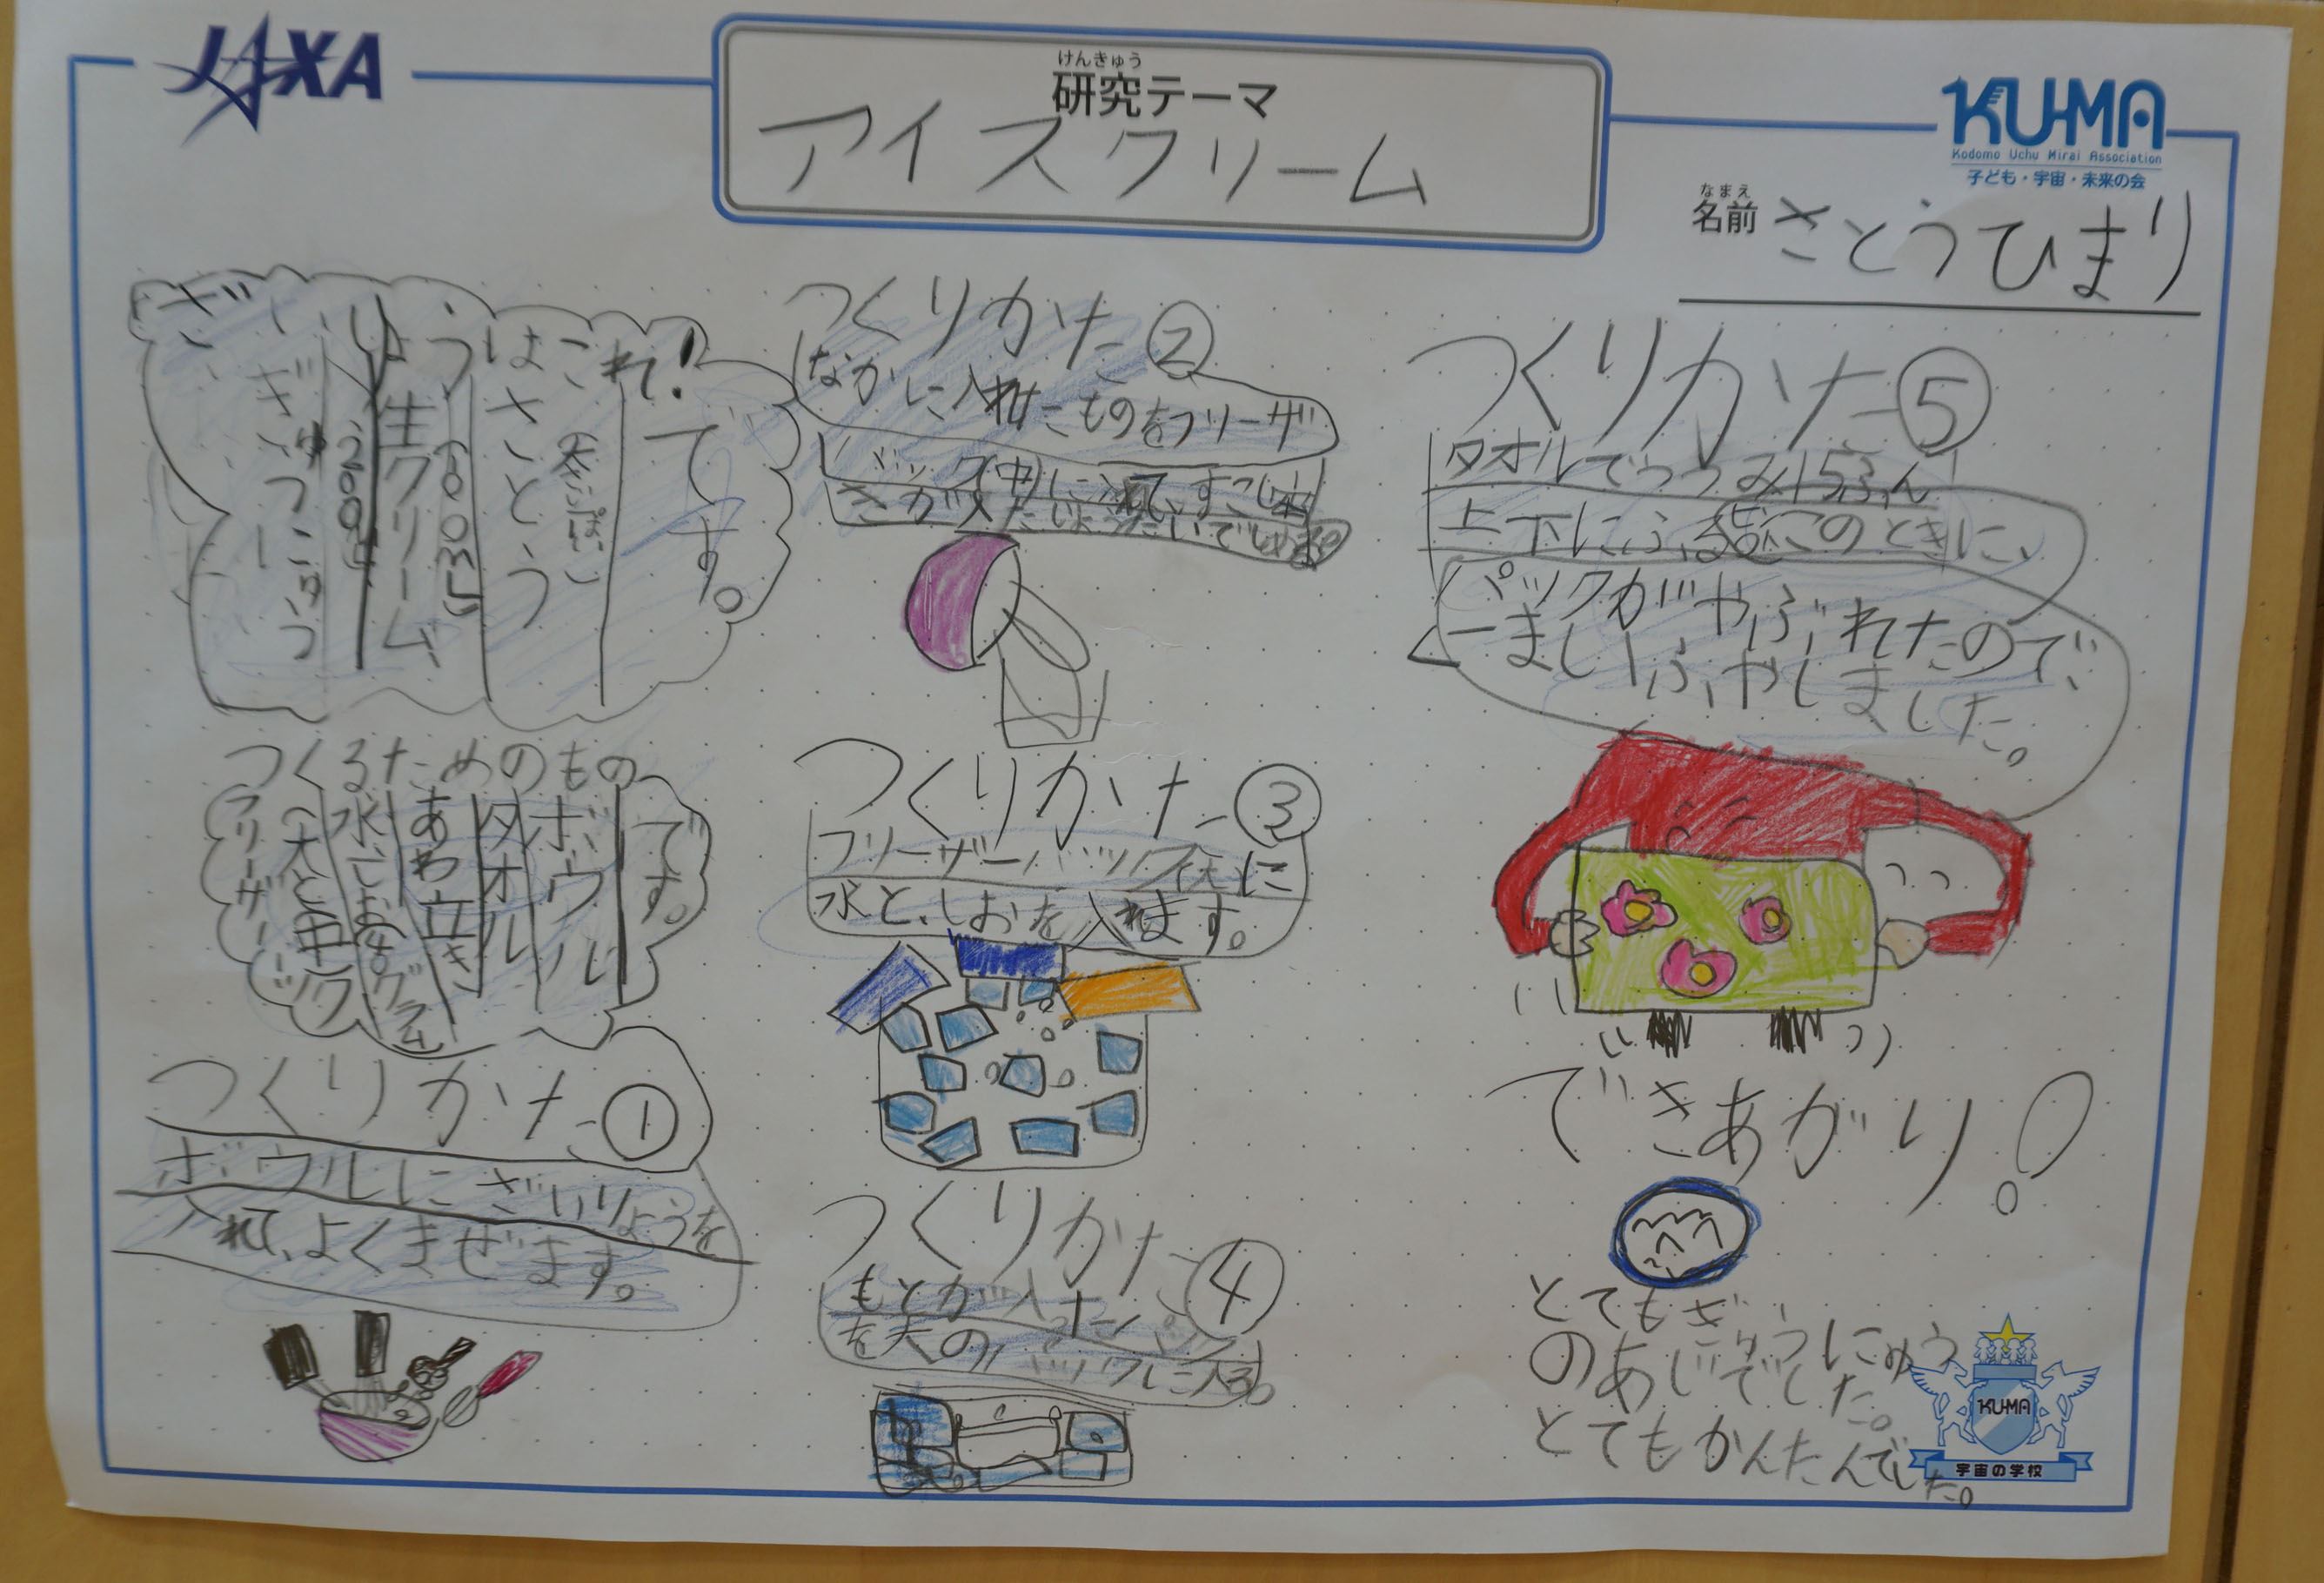 JAXA
けんきゅう
研究テーマ
アイスクリーム
KU-MA
Kodomo Uchu Mirai Association
子ども・宇宙・未来の会
なまえ
名前 さとうひまり
ざいりょうはこれ!
ぎゅうにゅう
200mL
生クリーム、
100mL
さとう
です。
つくるためのもの
フリーザーバック
大と中
水しお
グラム
あわ立き
タオル
ボウル
です。
つくりかた①
ボウルにざいりょうを
入れて、よくまぜます。
つくりかた②
なかに入れたものをフリーザ
バック(中)に入れて、すこし
つくりかた③
フリーザーバック大に
水と、しおを入れます。
つくりかた④
もとが入った
を大のバックに入る。
つくりかた⑤
タオルでつつみ15ふん
上下にふる このときに、
パックがやぶれたので、
一まいふやしました。
できあがり!
とてもぎゅうにゅう
のあじでした。
とてもかんたんでした。
KU-MA
宇宙の学校